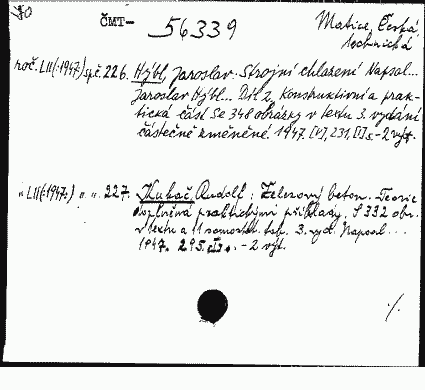 80
ČMT- 56339
Matice Česká
technická
roč. LII(:1947:) sp.č. 226. Hýbl, Jaroslav: Strojní chlazení Napsal...
Jaroslav Hýbl... Díl 2, Konstruktivní a prak-
tická část. Se 348 obrázky v textu 3. vydání
částečně změněné. 1947. [V], 231, [I] s. - 2 výt.
" LII(:1947:) " " 227. Kukač, Rudolf: Železový beton. Teorie
doplněná praktickými příklady. S 332 obr.
v textu a 11 samost. tab. 3. vyd. Napsal...
1947. 295 s. - 2 výt.